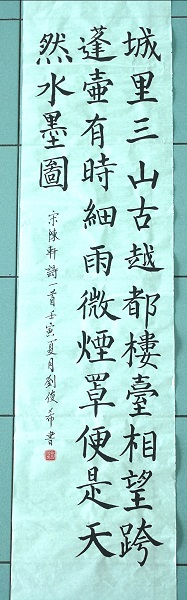 城里三山古越都樓臺相望跨
蓬壺有時細雨微煙罩便是天
然水墨圖
宋陳軒詩一首壬寅夏月劉俊希書